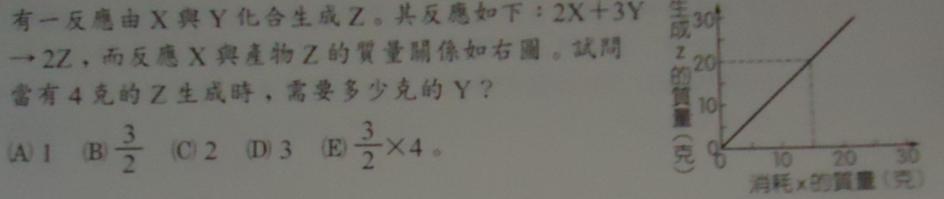 有一反應由 X 與 Y 化合生成 Z。其反應如下：2X＋3Y
→2Z，而反應 X 與產物 Z 的質量關係如右圖。試問
當有 4 克的 Z 生成時，需要多少克的 Y？
(A) 1 (B) 3/2 (C) 2 (D) 3 (E) 3/2×4。
生成 z 的質量（克）
30
20
10
0
0 10 20 30
消耗 x 的質量（克）